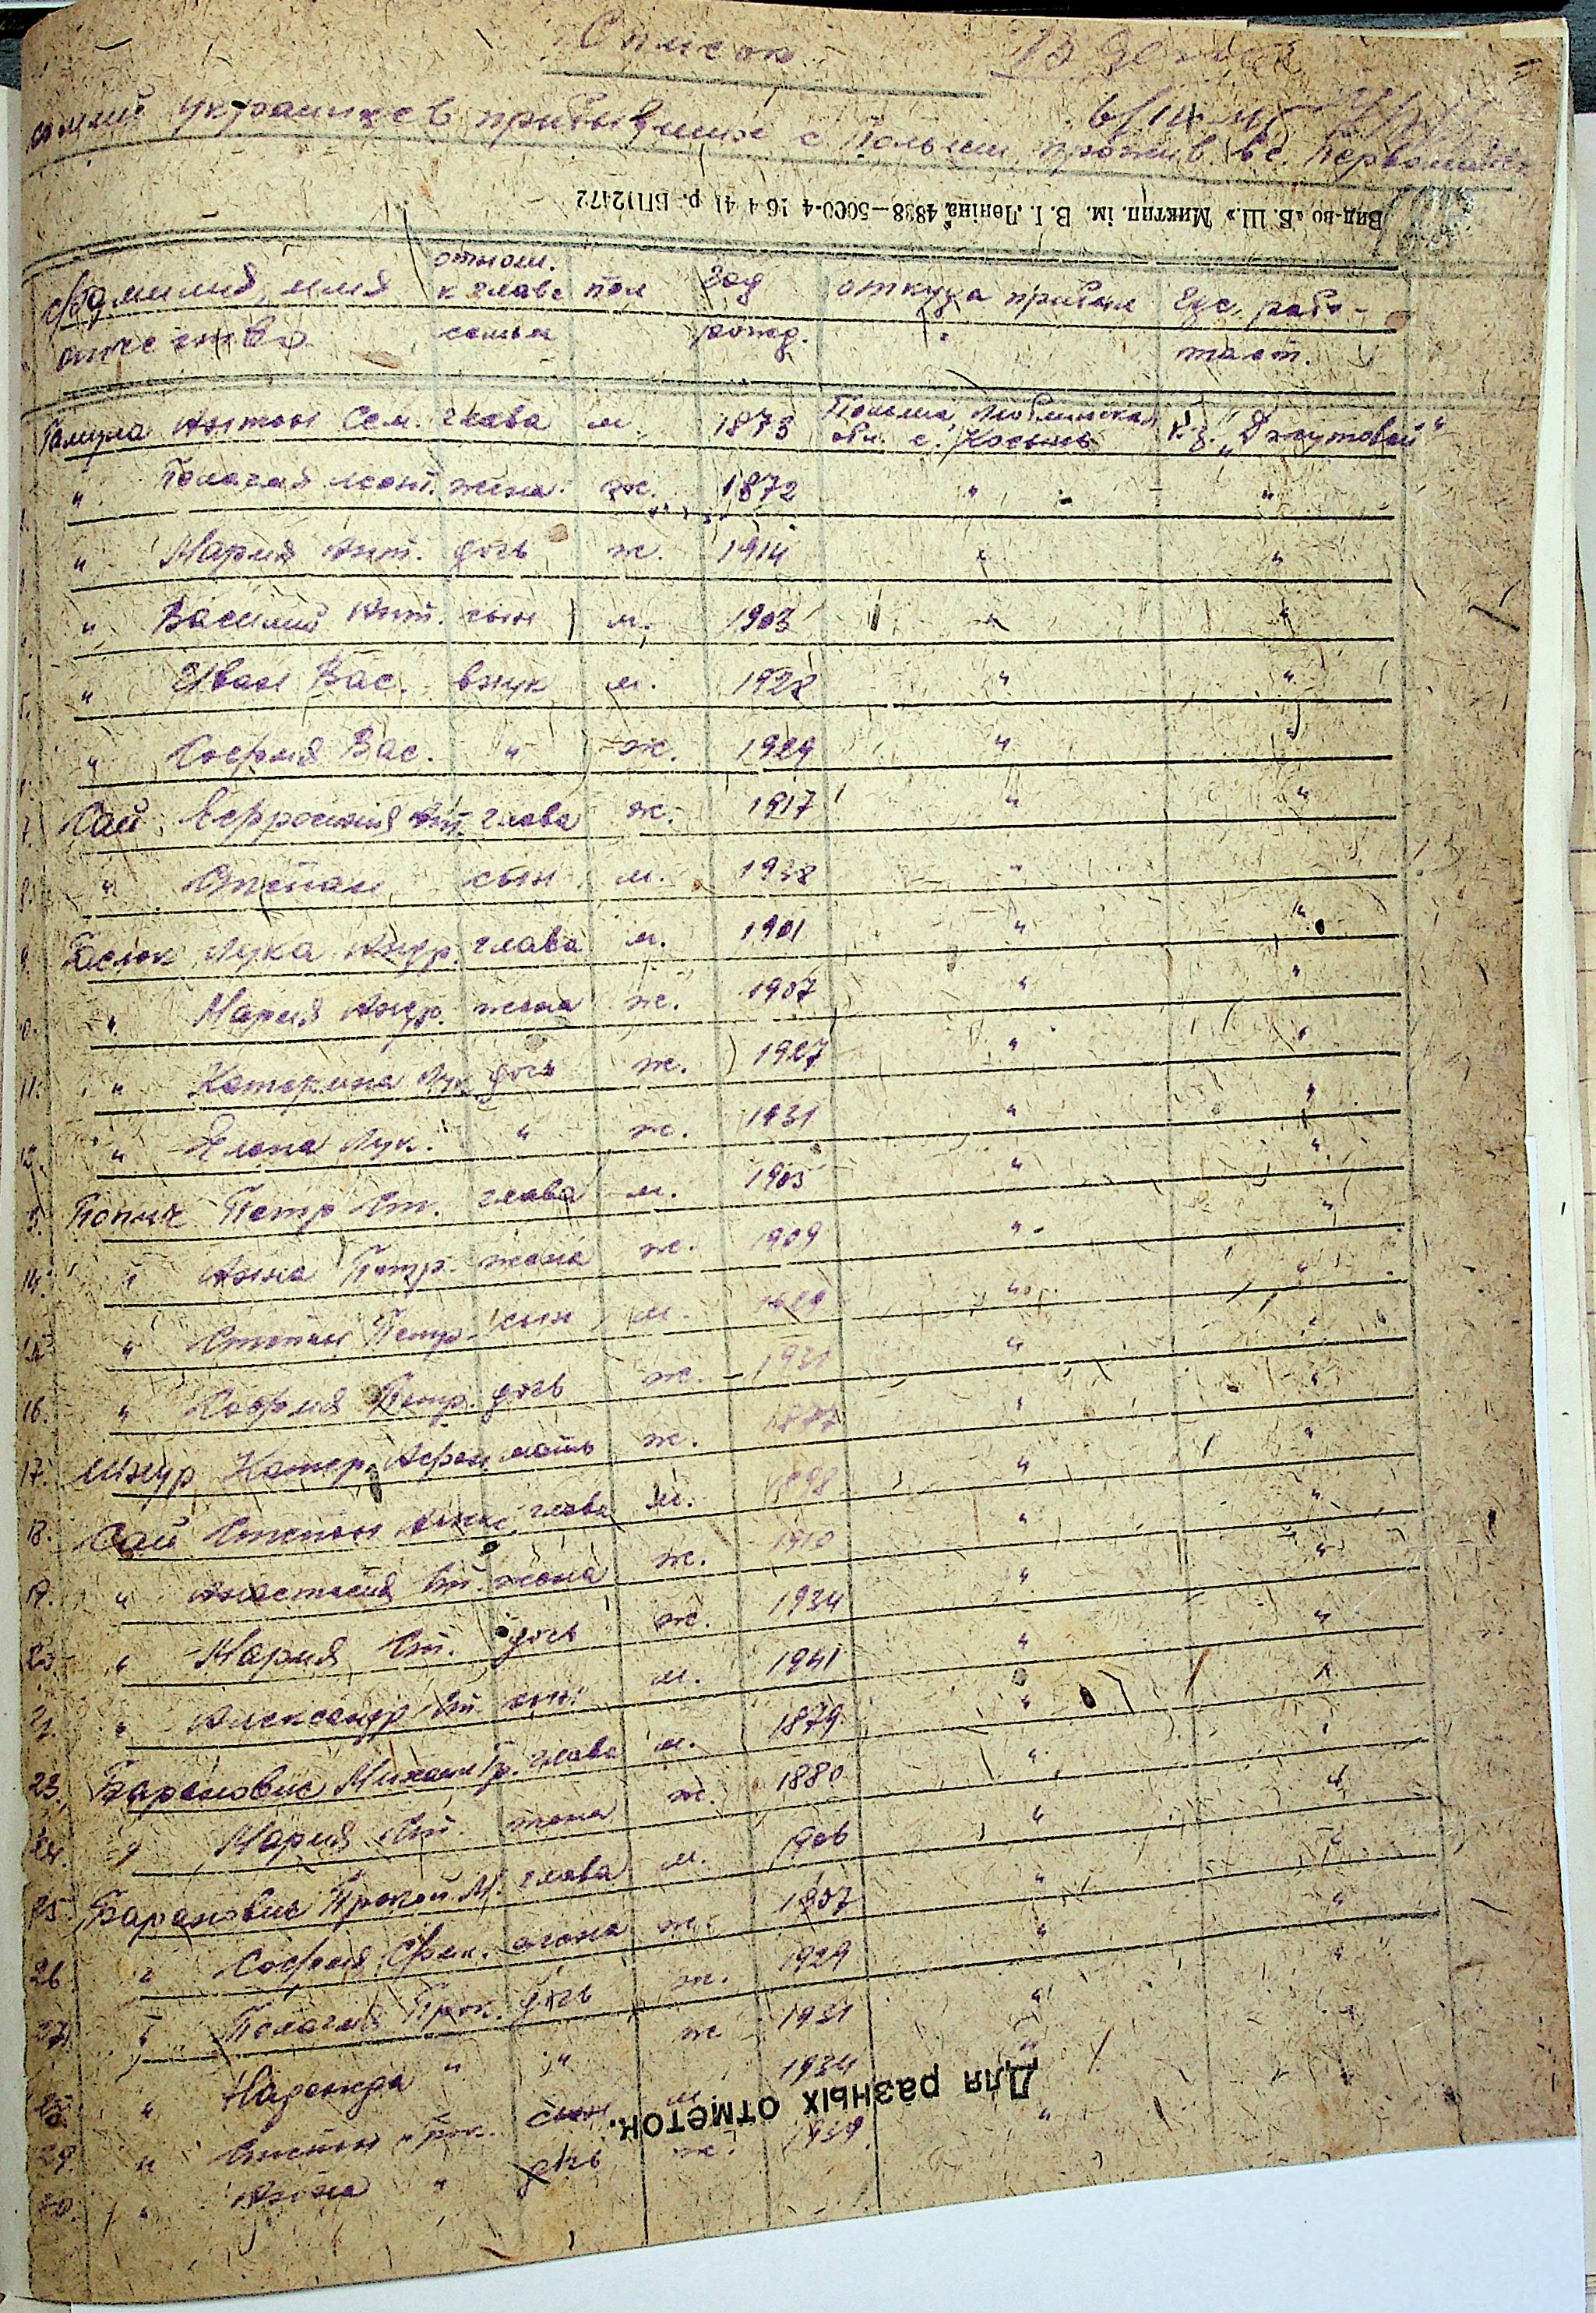 Список
семий украинцев прибывших с Польши, прожив. в с. Первомайск
Вид-во „Б. Ш.“ Миктип. ім. В. І. Леніна, 4838—5000-4 16 4 41 р. БП12172
Фамилия, имя отчество | отнош. к главе семьи | пол | год рожд. | откуда прибыл | где работает.
Антон Сем. глава м. 1873 Польша, Люблинская обл. с. к-з. „Джутовый“
" Пелагия жена ж. 1872 " "
" Мария Ант. дочь ж. 1914 " "
" Василий Ант. сын м. 1903 " "
" Иван Вас. внук м. 1928 " "
" София Вас. " ж. 1929 " "
7. Сай Ефросиния Ант. глава ж. 1917 " "
8. " Степан сын м. 1938 "
9. Лука Андр. глава м. 1901 " "
" Мария Андр. жена ж. 1907 " "
11. " Катерина Лук. дочь ж. 1927 " "
" Елена Лук. " ж. 1931 " "
Попик Петр Ст. глава м. 1905 " "
14. " Анна Петр. жена ж. 1909 " "
" Степан Петр. сын м. 1929 " "
16. " София Петр. дочь ж. 1931 " "
17. Катер. мать ж. " "
18. Сай Степан глава м. 1898 " "
19. " Анастасия жена ж. 1910 " "
20. " Мария Ст. дочь ж. 1934 " "
" Александр Ст. сын м. 1941 " "
23. Баранович Михаил Гр. глава м. 1879 " "
24. " Мария жена ж. 1880 " "
25. Баранович Прокоп. М. глава м. 1906 " "
26. " София жена ж. 1907 " "
27. " Пелагия Прок. дочь ж. 1929 " "
" Надежда " " ж 1931 " "
29. " Степан Прок. сын м. 1934 " "
30. " Анна " дочь ж. 1939. "
Для разных отметок.